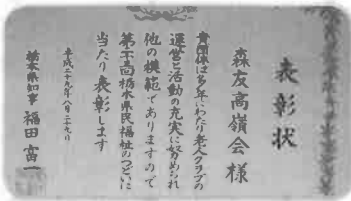 表彰状
森友高嶺会様
貴団体は多年にわたり老人クラブの
運営と活動の充実に努められ
他の模範でありますので
栃木県民福祉のつどいに
当たり表彰します
平成二十九年八月二十九日
栃木県知事 福田富一